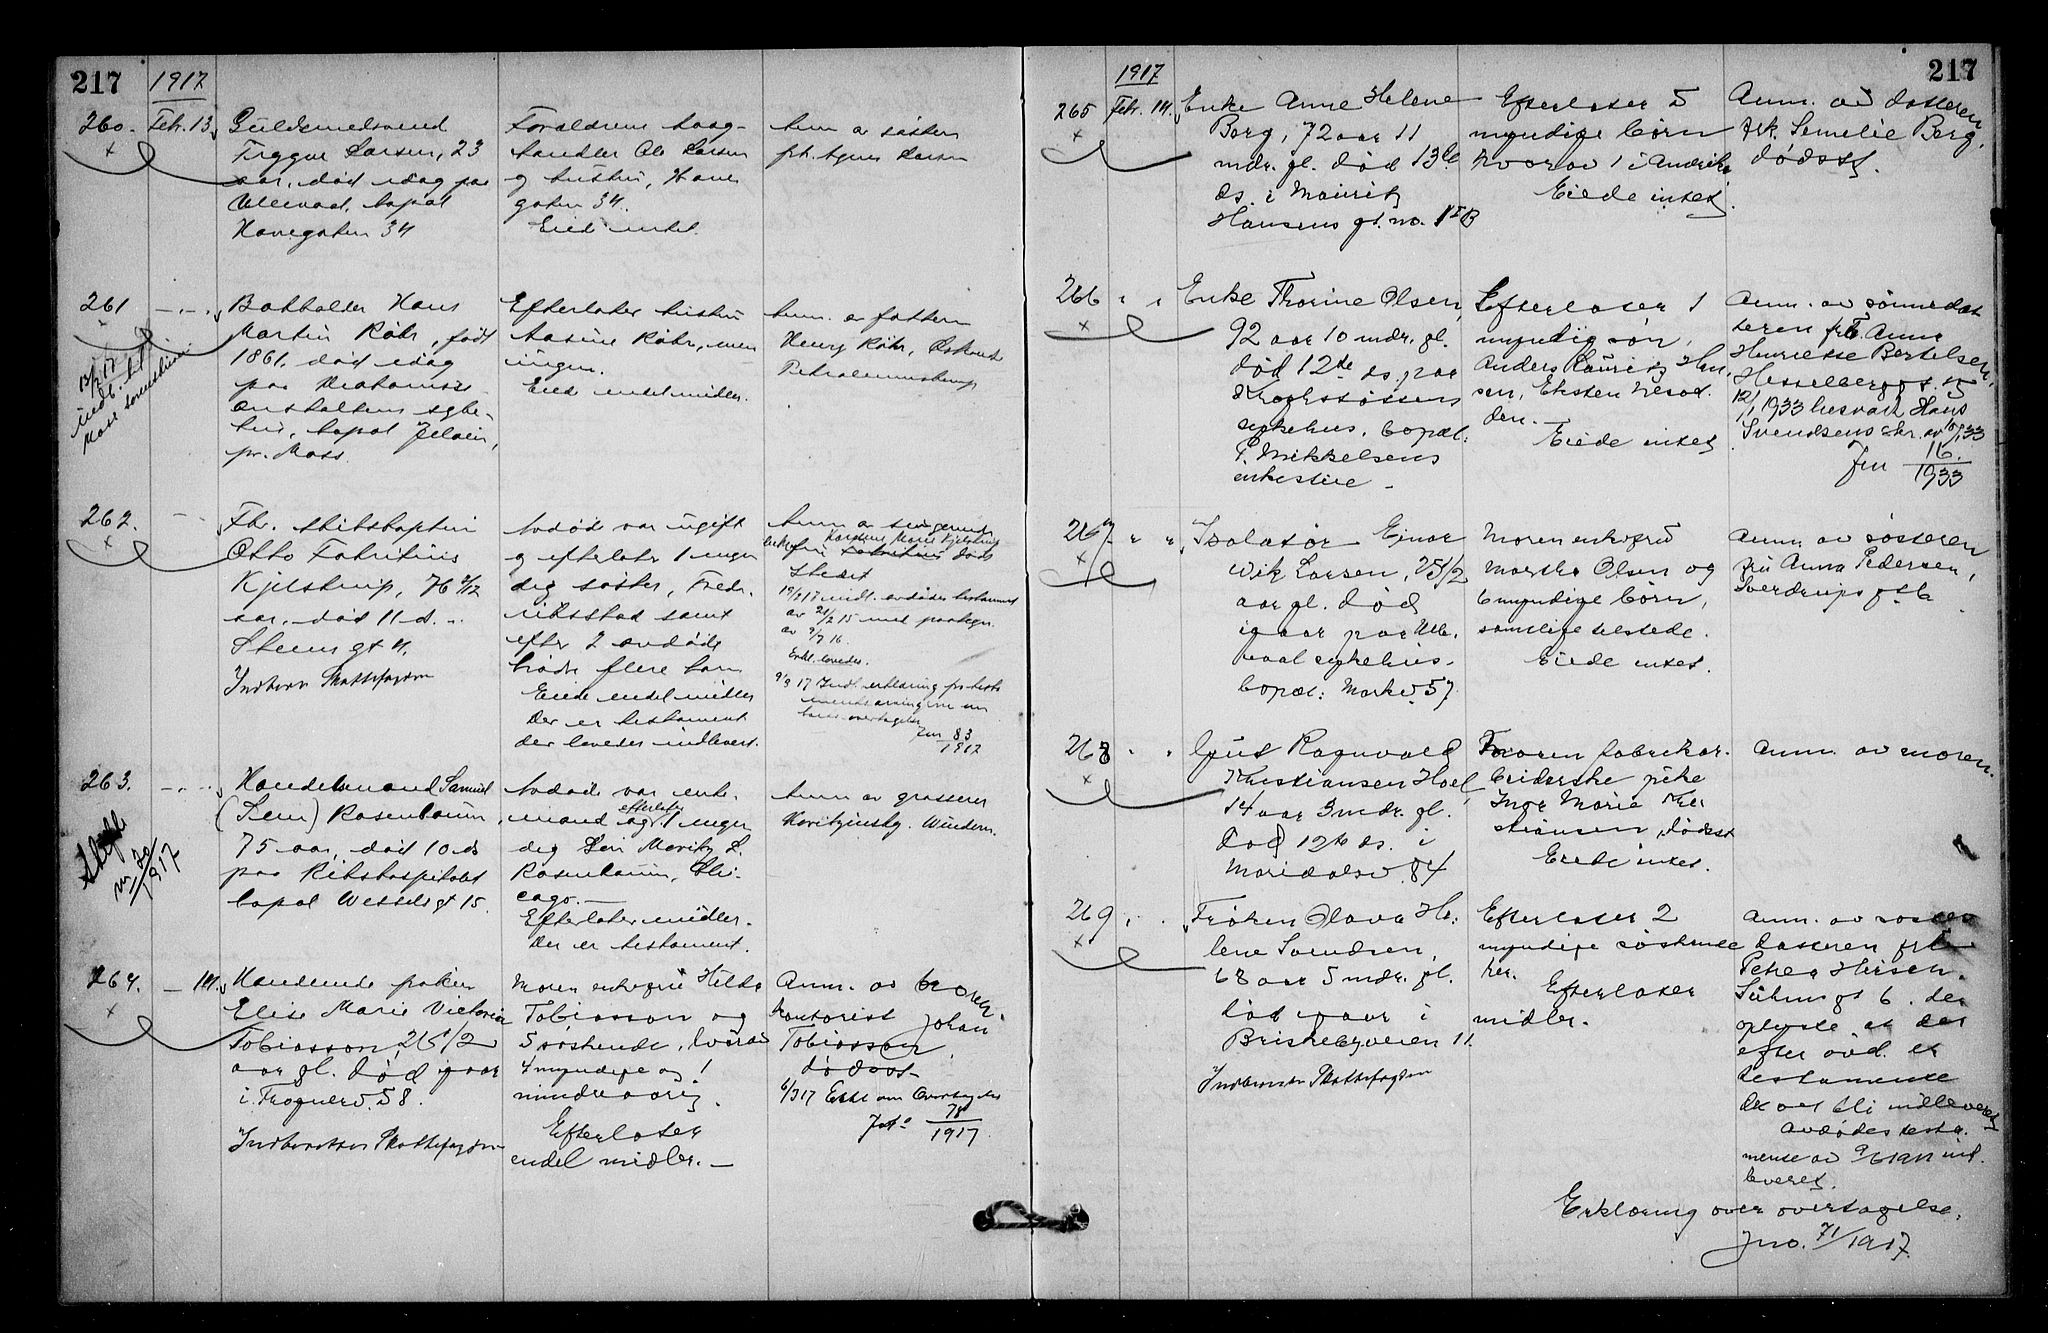 217
1917
260. Febr. 13.
Guldsmedsvend
Trygve Larsen, 23
aar, død idag paa
Ullevaal, bopal
Havegaten 34
Forældrene
handler Ole Larsen
og hustru, Have
gaten 34.
Eied intet.
Anm. av søsteren
frk. Agnes Larsen
261
Hans
Martin Røhr, født
1861, død idag
paa Diakonisse
anstaltens syke-
hus, bopal Jeløen,
pr. Moss.
Efterlater hustru
Røhr, men
ingen.
Eiede endel midler.
Anm. av
Henry Røhr,
262.
Fhv. skibskaptein
Otto Fabritius
Kjelstrup, 76
aar, død 11 d.
Stensgt 4.
Indberr. Skattefogden
Avdøde var ugift
og efterlater 1 myn
dig søster, Fredr.
rikstad samt
efter 2 avdøde
brødre flere barn
Eiede endel midler
Der er testament
der lovedes indlevert.
Anm. av
Marie Kjelstrup
Stedet
19/2 17 indl. avdødes testament
av 21/2 15 med paategn.
av 9/7 16.
Erkl. lovedes.
9/3 17 Indl. erklæring fra testa
mentsarvingerne om
boets overtagelse
Jnr 83
1917
263.
Handelsmand Samuel
(Sem) Rosenbaum,
75 aar, død 10 ds
paa Rikshospitalet
bopal Wesselsgt 15.
Avdøde var enke-
mand og efterlater 1 myn
dig søn Moritz L.
Rosenbaum, Chi-
cago. —
Efterlater midler.
Der er testament.
Anm. av grosserer
Vindern.
Skifte
nr 20
1917
264. — 14.
Handlende frøken
Elise Marie Victoria
Tobiasson, 26 1/2
aar gl. død igaar
i Frognerv. 58.
Indberettes Skattefogden
Moren enkefru Hilda
Tobiasson og
5 søskende, hvorav
4 myndige og 1
mindreaarig.
Efterlater
endel midler. —
Anm. av broren
kontorist Johan
Tobiasson,
dødsst.
6/3 17 Erkl. om Overtagelse
Jno 78
1917.
217
1917
265 Febr. 14.
Enke Anne Helene
Borg, 72 aar 11
mdr. gl. død 13de
ds. i Mauritz
Hansens gt. no. 1 B
Efterlater 5
myndige børn
hvorav 1 i Amerika
Eiede intet.
Anm. av datteren
frk. Semelie Borg,
dødsst.
266 " "
Enke Thorine Olsen,
92 aar 10 mdr. gl.
død 12te ds. paa
Krogstøttens
sykehus, bopæl:
P. Mikkelsens
enkestue —
Efterlater 1
myndig søn,
Anders Lauritz Han
sen, Eksten Nesod
den. —
Eiede intet
Anm. av sønnedat
teren frk Anna
Henriette Bertelsen,
Hesselberggt. 5
12/1 1933 besvart Hans
Svendsens skr. av 10/1 33
Jnr 16.
1933
267. " "
Isolatør Einar
Wik Larsen, 25 1/2
aar gl. død
igaar paa Ulle.
vaal sykehus.
bopæl: Markv. 57.
Moren enkefru
Martha Olsen og
6 myndige børn,
samtlige tilstede.
Eiede intet.
Anm. av søsteren
fru Anna Pedersen,
Sverdrupsgt 6
268 " "
Gut Ragnvald
Kristiansen Hoel,
14 aar 3 mdr. gl.
død 12te ds. i
Maridalsv. 84
Moren fabrikar.
beiderske pike
Inga Marie Kri
stiansen, dødsst
Eiede intet.
Anm. av moren.
269 " "
Frøken Olava He-
lene Svendsen,
68 aar 5 mdr. gl.
død igaar i
Briskebyveien 11.
Indberettes Skattefogden
Efterlater 2
myndige søskende
her.
Efterlater
midler.
Anm. av søster
datteren frk
Petra Hirsch.
Suhmsgt 6. der
oplyste at der
efter avd. et
testamente
der vil bli indleveret
Avdødes testa.
mente av 9/6 1911 ind
leveret.
Erklæring over overtagelse,
Jno. 71/1917.